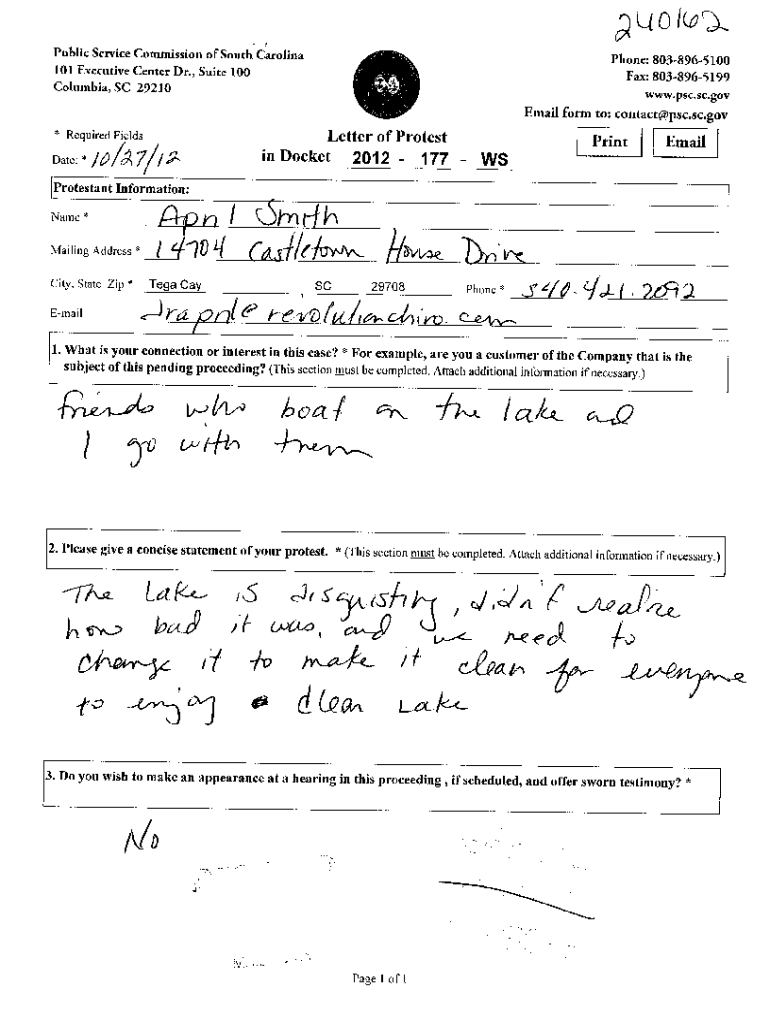 240162
Public Service Commission of South Carolina
101 Executive Center Dr., Suite 100
Columbia, SC 29210
Phone: 803-896-5100
Fax: 803-896-5199
www.psc.sc.gov
Email form to: contact@psc.sc.gov
* Required Fields
Letter of Protest
Print Email
Date: * 10/27/12
in Docket 2012 - 177 - WS
Protestant Information:
Name * April Smith
Mailing Address * 14704 Castletown House Drive
City, State Zip * Tega Cay , SC 29708 Phone * 540.421.2092
E-mail drapril@revolutionchiro.com
1. What is your connection or interest in this case? * For example, are you a customer of the Company that is the
subject of this pending proceeding? (This section must be completed. Attach additional information if necessary.)
friends who boat on the lake and
I go with them
2. Please give a concise statement of your protest. * (This section must be completed. Attach additional information if necessary.)
The Lake is disguisting, didn't realize
how bad it was, and we need to
change it to make it clean for everyone
to enjoy a clean Lake
3. Do you wish to make an appearance at a hearing in this proceeding , if scheduled, and offer sworn testimony? *
No
Page 1 of 1